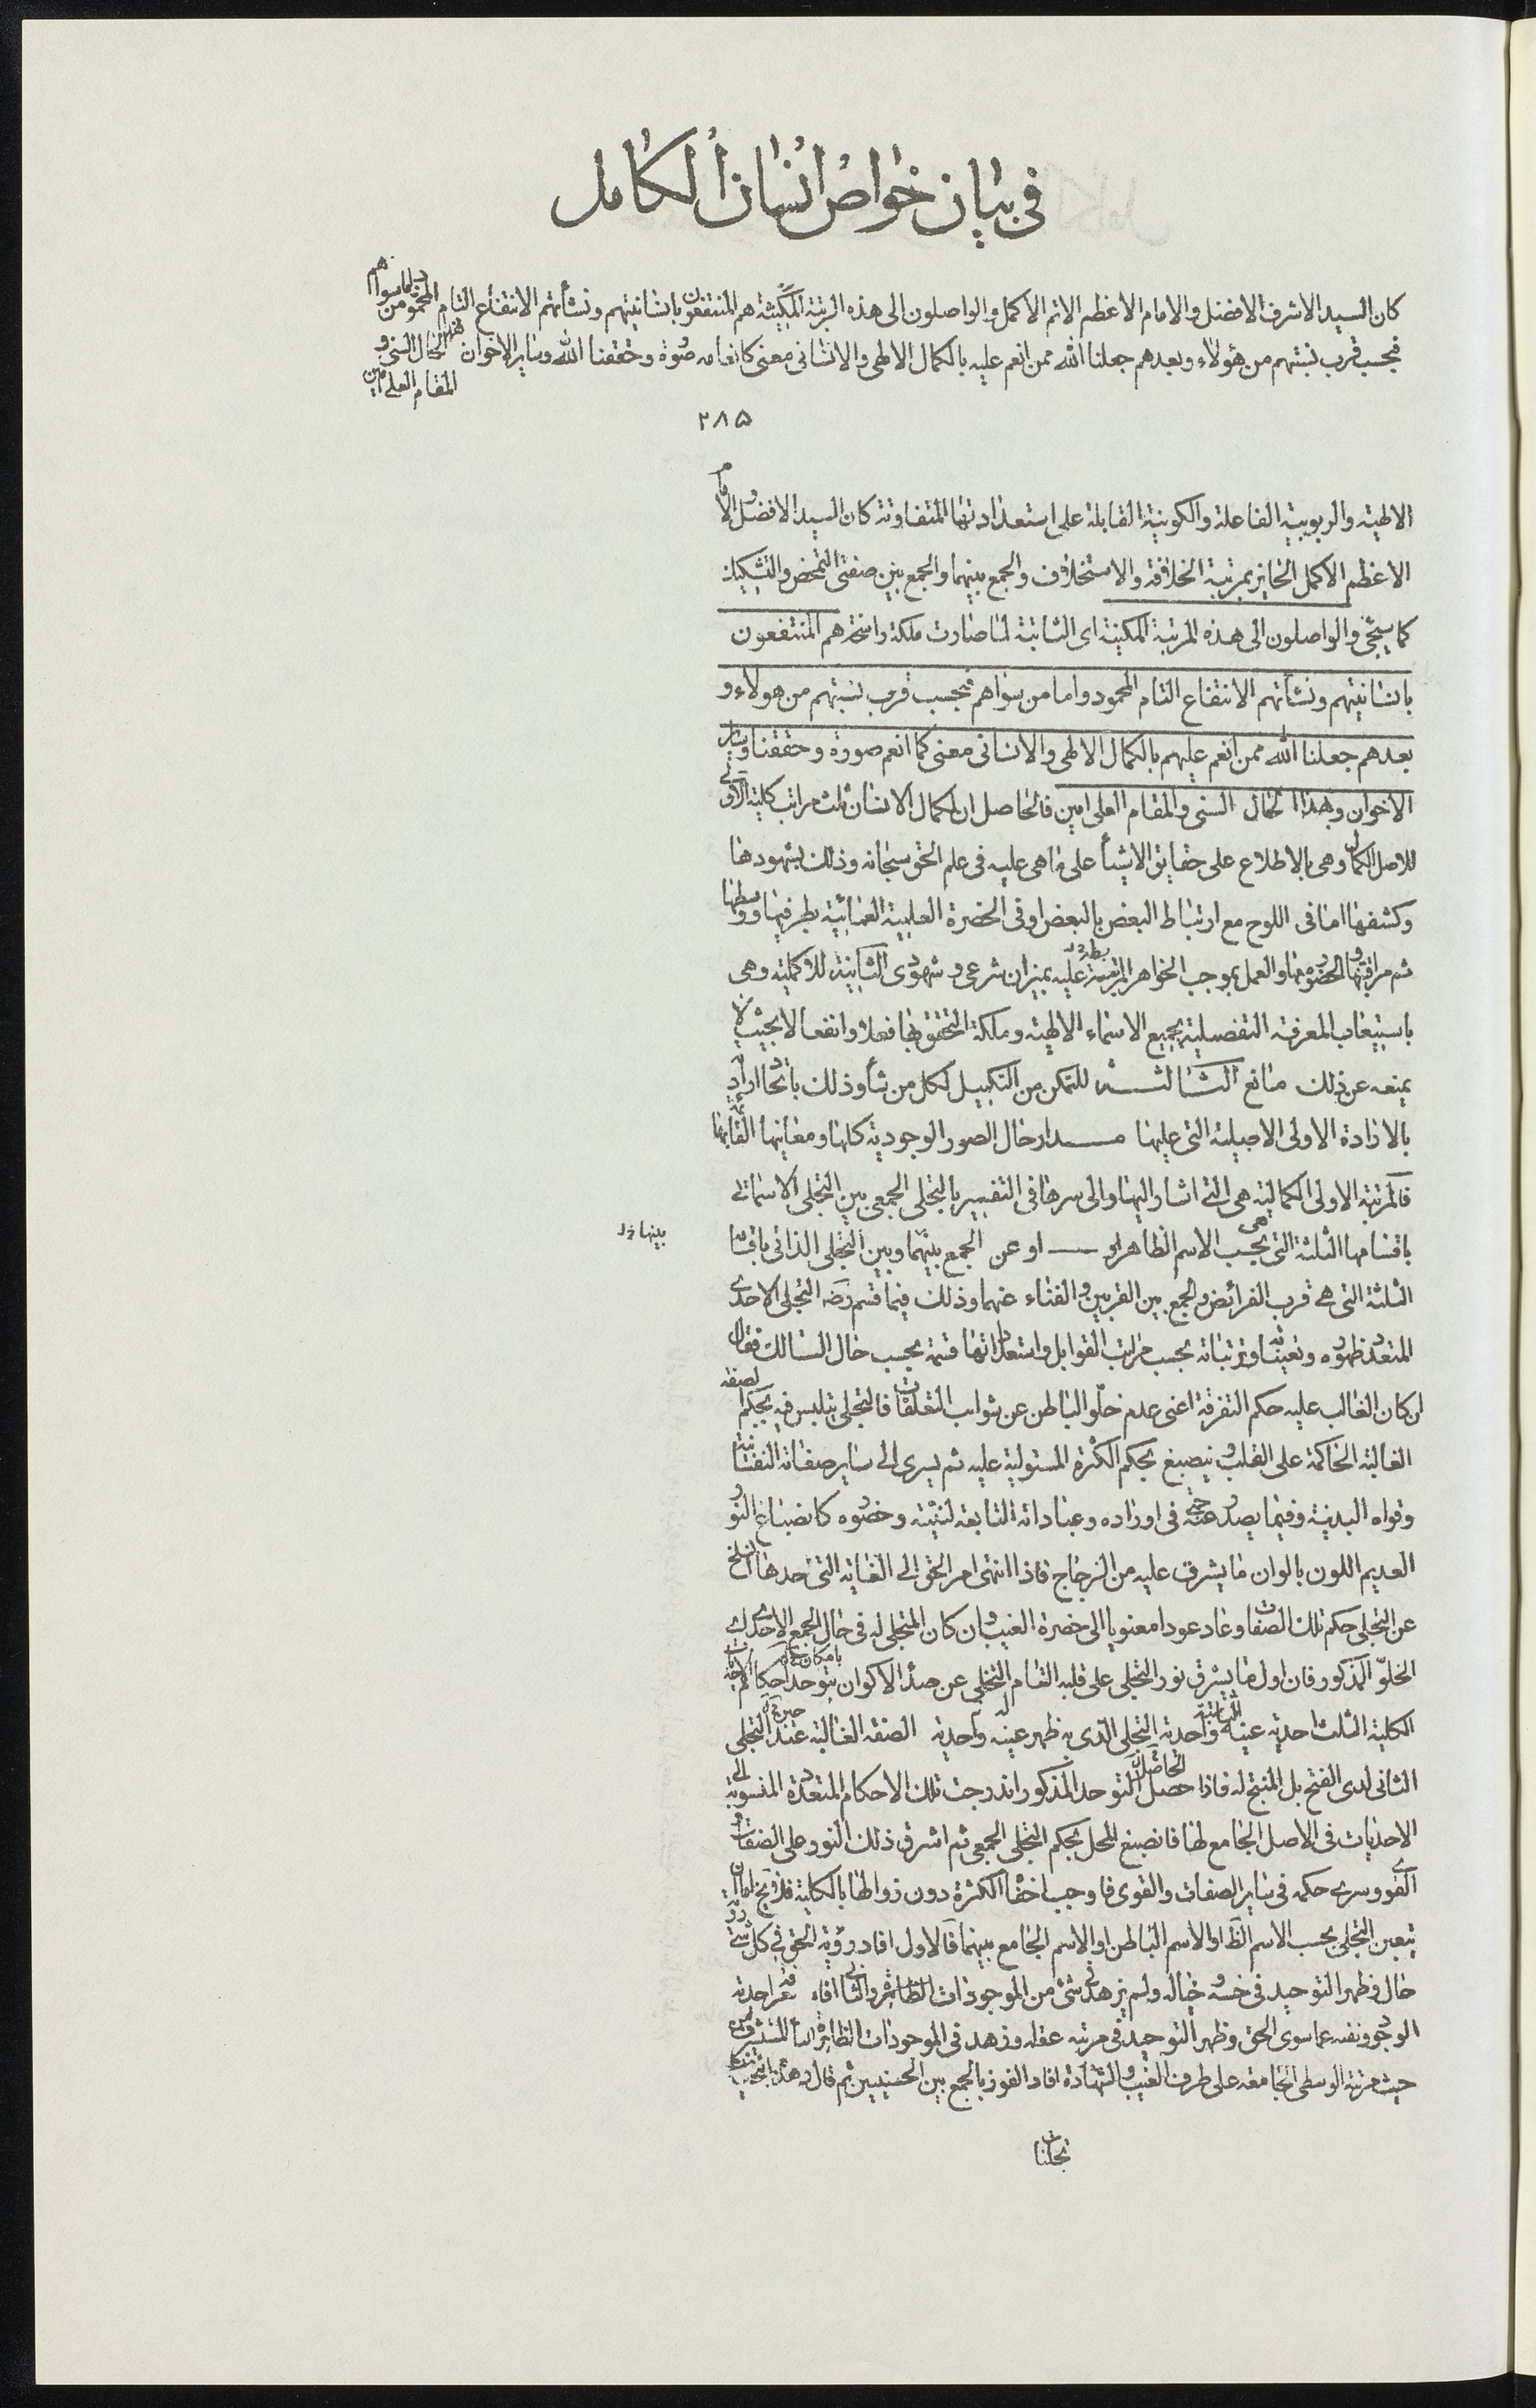 في بيان خواص انسان الكامل
كان السيد الاشرف الافضل والامام الاعظم الاتم الاكمل والواصلون الى هذه المرتبة المكينة هم المنتفعون بانسانيتهم ونشأتهم الانتفاع التام المحمود
فبحسب قرب نسبتهم من هؤلاء وبعدهم جعلنا الله ممن انعم عليه بالكمال الالهى والانسانى معنى كانعامه صورة وحققنا الله وساير الاخوان الحال السنى و
المقام العلى امين
٢٨٥
الالهية والربوبية الفاعلة والكونية القابلة على استعداداتها المتفاوتة كان السيد الافضل والامام
الاعظم الاكمل الحايز بمرتبة الخلافة والاستخلاف والجمع بينهما والجمع بين صفتى التمحض والتشكيك
كما سيجئ والواصلون الى هذه المرتبة المكينة اى الثابتة لما صارت ملكة راسخة هم المنتفعون
بانسانيتهم ونشأتهم الانتفاع التام المحمود واما من سواهم فبحسب قرب نسبتهم من هولاء و
بعدهم جعلنا الله ممن انعم عليهم بالكمال الالهى والانسانى معنى كما انعم صورة وحققنا وساير
الاخوان وبهذا الحال السنى والمقام العلى امين فالحاصل ان لكمال الانسان ثلث مراتب كلية الاولى
للاصل الكمال وهى بالاطلاع على حقايق الاشيأ على ما هى عليه فى علم الحق سبحانه وذلك بشهودها
وكشفها اما فى اللوح مع ارتباط البعض بالبعض او فى الحضرة العلمية العمائية بطرفيها ووسطها
ثم مراقبتها والحضور معها والعمل بموجب الخواطر المرتبة عليه بميزان شرعى وشهودى الثانية للاكملية وهى
باستيعاب المعرفة التفصيلية بجميع الاسماء الالهية وملكة التحقق بها فعلا وانفعالا بحيث لا
يمنعه عن ذلك مانع الثالثة للتمكن من التكميل لكل من شأ وذلك باتحاد ارادته
بالارادة الاولى الاصيلة التى عليها مدار حال الصور الوجودية كلها ومعانيها القائمة بها
فالمرتبة الاولى الكمالية هى التى اشار اليها والى سرها فى التفسير بالتجلى الجمعى بين التجلى الاسمائى
باقسامها الثلثة التى هى بحسب الاسم الظاهر او — او عن الجمع بينهما وبين التجلى الذاتى باقسامه
بينها
الثلثة التى هى قرب الفرائض والجمع بين القربين والفناء عنهما وذلك فيما قسم رضه التجلى الاحدى
المتعدد ظهوره وتعيناته وترتباته بحسب مراتب القوابل واستعداداتها قسمة بحسب حال السالك فقال
ان كان الغالب عليه حكم التفرقة اعنى عدم خلو الباطن عن شوايب التعلقات فالتجلى يتلبس فيه بحكم الصفة
الغالبة الحاكمة على القلب وينصبغ بحكم الكثرة المستولية عليه ثم يسرى الى ساير صفاته النفسانية
وقواه البدنية وفيما يصدر عنه حتى فى اوراده وعباداته التابعة لنيته وحضوره كانصباغ النور
العديم اللون بالوان ما يشرق عليه من الزجاج فاذا انتهى امر الحق الى الغاية التى حدها انسلخ
عن التجلى حكم تلك الصفات وعاد عودا معنويا الى حضرة الغيب وان كان المتجلى له فى حال الجمع الاحدى
الخلو المذكور فان اول ما يشرق نور التجلى على قلبه التام التخلى عن صدأ الاكوان يتوحد احكام
الكلية الثلث احدية عينه الثابتة واحدية التجلى الذى به ظهر عينه واحدية الصفة الغالبة عند التجلى
الثانى لدى الفتح بل المنتج له فاذا حصل التوحد المذكور اندرجت تلك الاحكام المتعددة المنسوبة الى
الاحديات فى الاصل الجامع لها فانصبغ المحل بحكم التجلى الجمعى ثم اشرق ذلك النور على الصفات و
القوى وسرى حكمه فى ساير الصفات والقوى فاوجب اخفأ الكثرة دون زوالها بالكلية
يتعين التجلى بحسب الاسم الظ او الاسم الباطن او الاسم الجامع بينهما فالاول افاد رؤية الحق فى كل شئ
حال وظهر التوحيد فى حسه وخياله ولم يزهد فى شئ من الموجودات الظاهرة والثانى افاد معرفة احدية
الوجود ونفيه عما سوى الحق وظهر التوحيد فى مرتبة عقله وزهد فى الموجودات الظاهرة
حيث مرتبة الوسطى الجامعة على طرف الغيب والشهادة افاد الفوز بالجمع بين الحسنيين ثم قال وهذه
تجليات